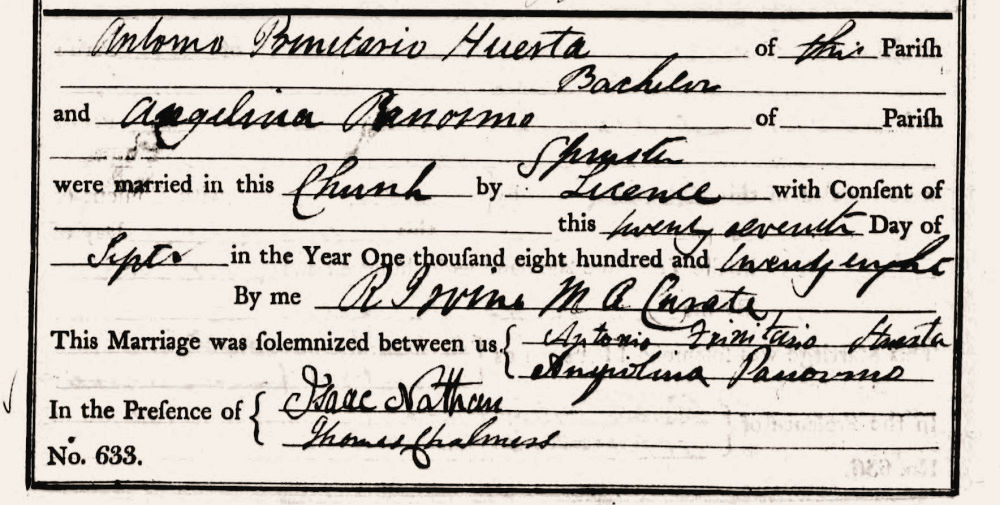 Antonio Trinitario Huesta of this Pariſh
Bachelor
and Angelina Panormo of Pariſh
Spinster
were married in this Church by Licence with Conſent of
this twenty seventh Day of
Septr in the Year One thouſand eight hundred and twenty eight
By me R Irvine M A Curate
This Marriage was ſolemnized between us { Antonio Trinitario Huesta
Angiolina Panormo
In the Preſence of { Isaac Nathan
Thomas Chalmers
No. 633.